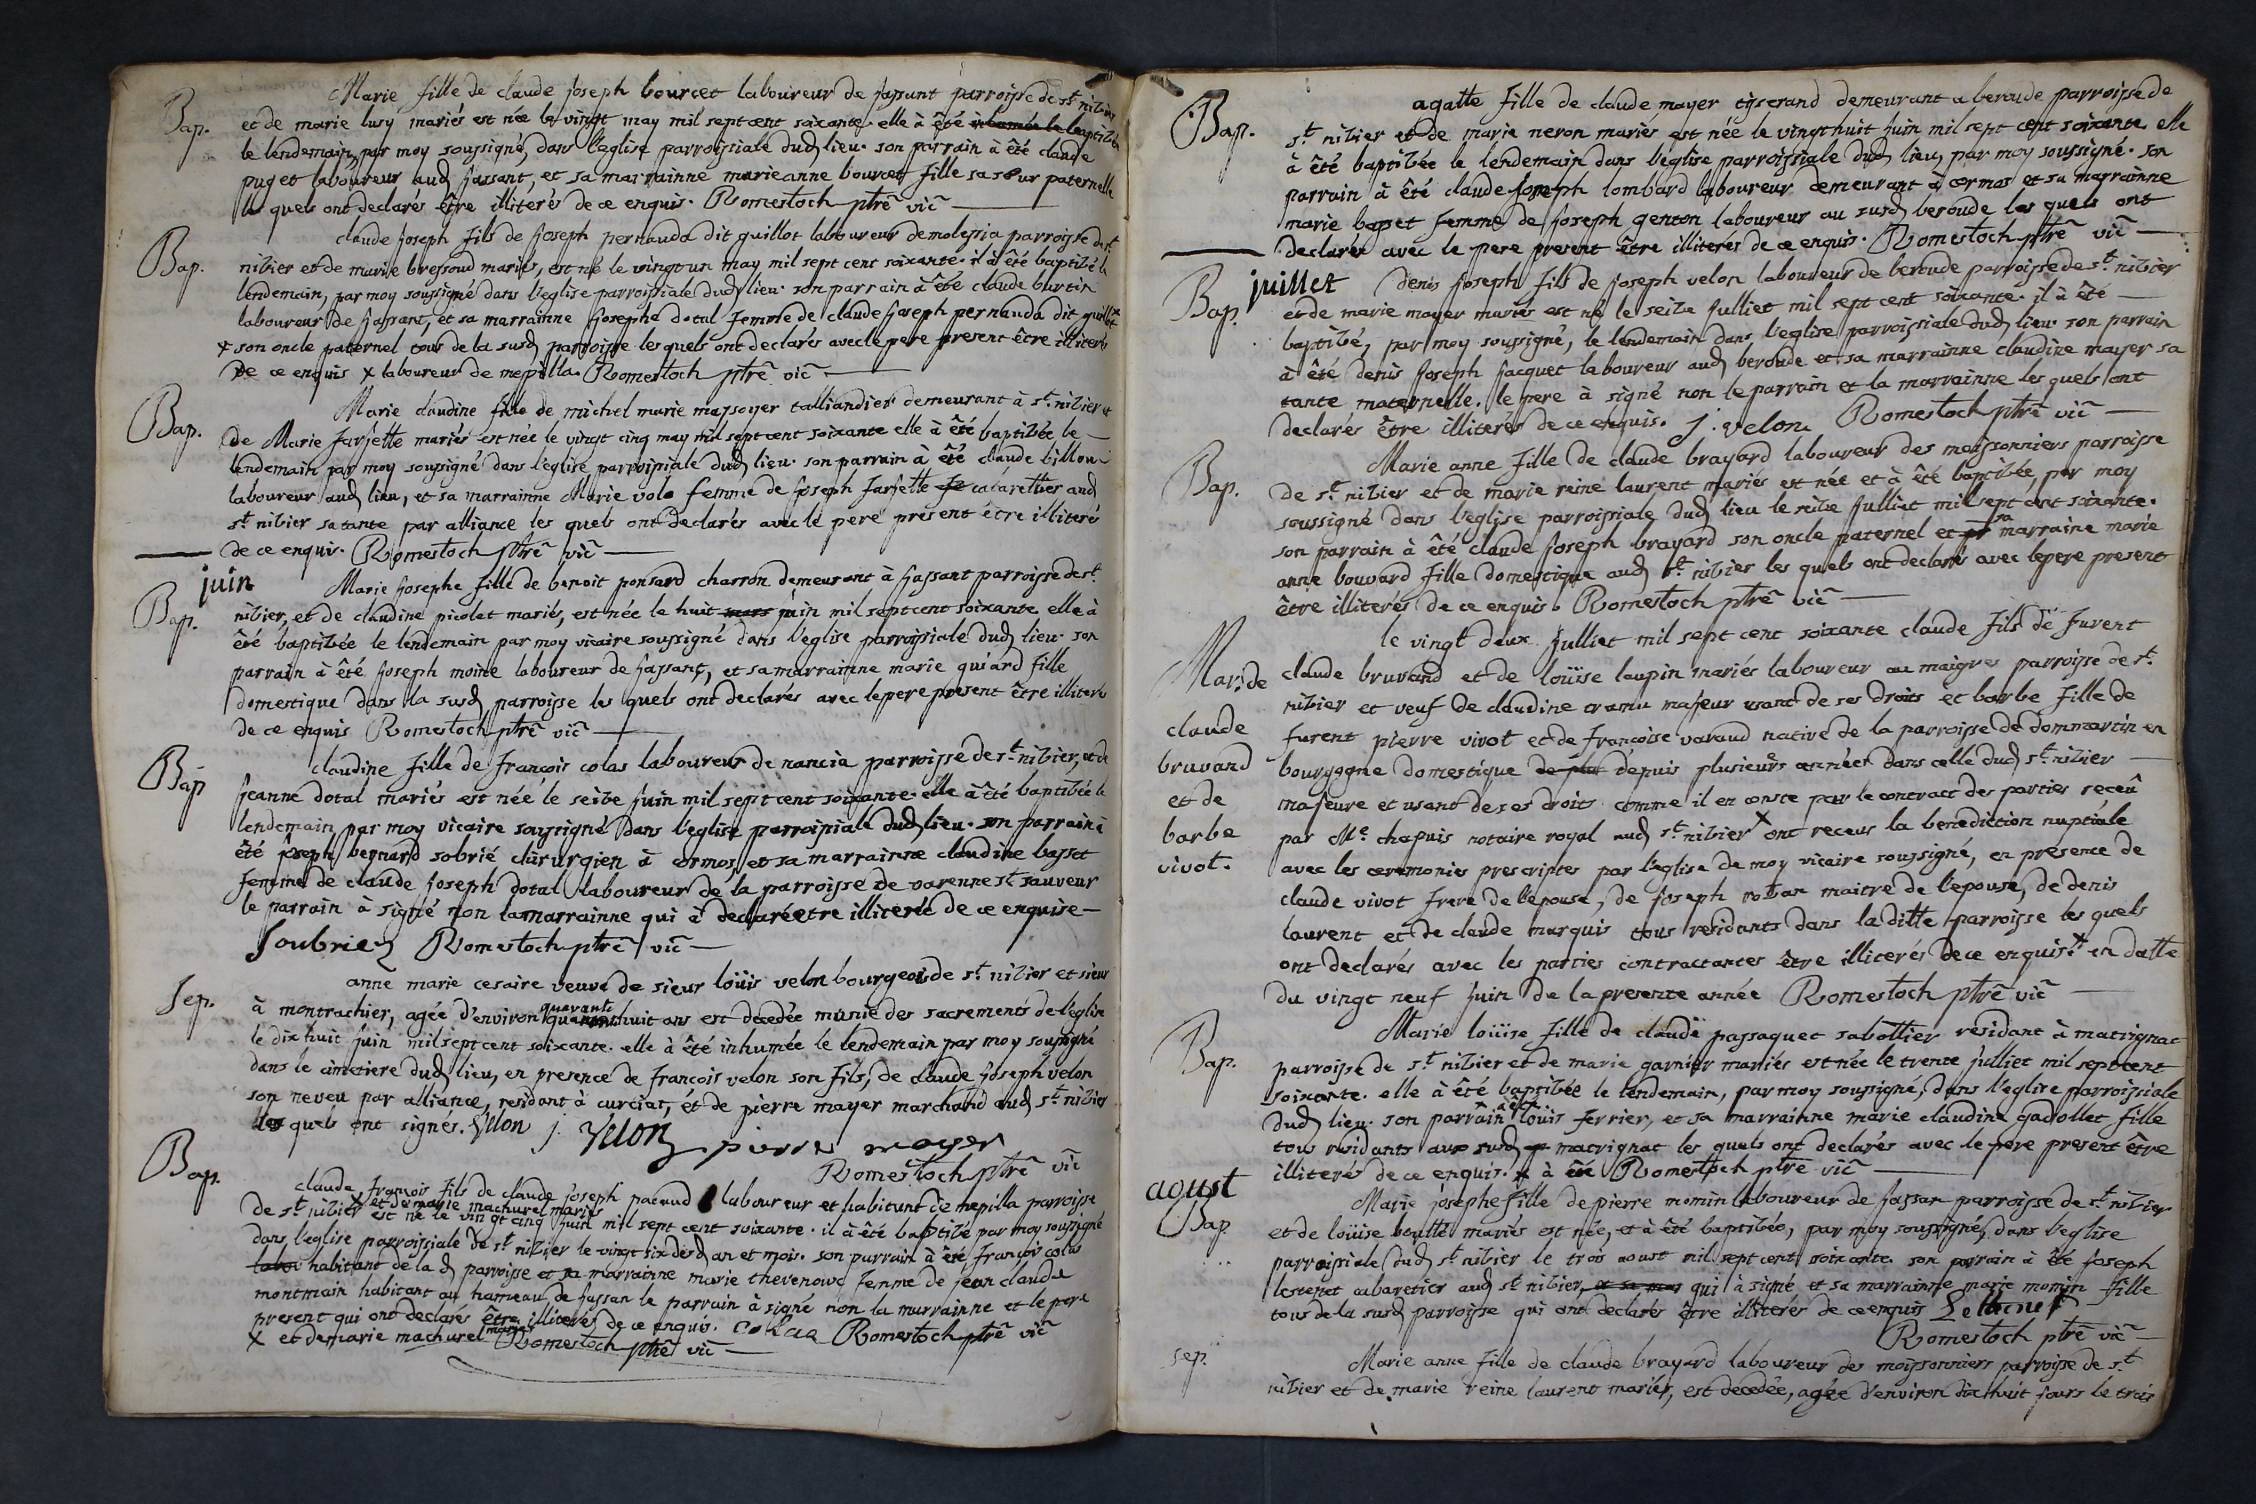 Bap.
Marie fille de claude joseph bourcet laboureur de jassant parroisse de st. nizier
et de marie lusy mariés est née le vingt may mil sept cent soixante. elle à été inhumée le baptizée
le lendemain, par moy soussigné, dans l'eglise parroissiale dud lieu. son parrain à été claude
puget laboureur aud jassant, et sa marrainne marieanne bourcet fille sa sœur paternelle
les quels ont declarés être illiterés de ce enquis. Romestoch ptrê vic̃
Bap.
claude joseph fils de joseph pernauda dit guillot laboureur de molezia parroisse de st.
nizier et de marie bressoud mariés, est né le vingt un may mil sept cent soixante. il à été baptizé le
lendemain, par moy soussigné dans l'eglise parroissiale dud lieu. son parrain à été claude burtin
laboureur de jassant, et sa marrainne josephe dotal femme de claude joseph pernauda dit guillot x
x son oncle paternel tous de la susd parroisse lesquels ont declarés avec le pere present être illiterés
de ce enquis x laboureur de mepilla. Romestoch ptrê vic̃
Bap.
Marie claudine fille de michel marie massoyer talliandier demeurant à st. nizier et
de Marie farjette mariés est née le vingt cinq may mil sept cent soixante elle à été baptizée le
lendemain par moy soussigné dans l'eglise parroissiale dud lieu. son parrain à été claude billon
laboureur aud lieu, et sa marrainne Marie volo femme de joseph farjette fe cabarettier aud
st. nizier sa tante par alliance les quels ont declarés avec le pere present être illiterés
de ce enquis. Romestoch ptrê vic̃
juin
Bap.
Marie josephe fille de benoit ponsard charron demeurant à jassant parroisse de st.
nizier, et de claudine picolet mariés, est née le huit mars juin mil sept cent soixante elle à
été baptizée le lendemain par moy vicaire soussigné dans l'eglise parroissiale dud lieu. son
parrain à été joseph moine laboureur de jassant, et sa marrainne marie quiard fille
domestique dans la susd parroisse les quels ont declarés avec le pere present être illiterés
de ce enquis Romestoch ptrê vic̃
Bap
claudine fille de françois colas laboureur de nancia parroisse de st. nizier, et de
jeanne dotal mariés est née le seize juin mil sept cent soixante. elle à été baptizée le
lendemain par moy vicaire soussigné dans l'eglise parroissiale dud lieu. son parrain à
été joseph bernard sobrié chirurgien à cormos, et sa marrainne claudine basset
femme de claude joseph dotal laboureur de la parroisse de varenne st. sauveur
le parrain à signé non la marrainne qui à declaré etre illiterée de ce enquise
Soubriez Romestoch ptrê vic̃
Sep.
anne marie cesaire veuve de sieur loüis velon bourgeois de st. nizier et sieur
à montrachier, agée d'environ quarante huit ans est decedée munie des sacrements de l'eglise
le dix huit juin mil sept cent soixante. elle à été inhumée le lendemain par moy soussigné
dans le cimetiere dud lieu, en presence de françois velon son fils, de claude joseph velon
son neveu par alliance, residant à curciat, et de pierre mayer marchand aud st. nizier
les quels ont signés. Velon j. Velon pierre mayer
Romestoch ptrê vic̃
Bap.
claude françois fils de claude joseph pacaud laboureur et habitant de mepilla parroisse
x et de marie machurel mariés
de st. nizier est né le vingt cinq juin mil sept cent soixante. il à été baptizé par moy soussigné
dans l'eglise parroissiale de st. nizier le vingt six desd an et mois. son parrain à été françois colas
labou habitant de la d parroisse et sa marrainne marie thevenoud femme de jean claude
montmain habitant au hameau de jassan le parrain à signé non la marrainne et le pere
present qui ont declarés être illiterés de ce enquis. collas Romestoch ptrê vic̃
x et de marie machurel mariés Romestoch ptrê vic̃
Bap.
agatte fille de claude mayer tisserand demeurant a beroude parroisse de
st. nizier et de marie neron mariés, est née le vingt huit juin mil sept cent soixante elle
à été baptizée le lendemain dans l'eglise parroissiale dud lieu, par moy soussigné. son
parrain à été claude joseph lombard laboureur demeurant à cormos et sa marrainne
marie bapet femme de joseph genton laboureur au susd beroude les quels ont
declarés avec le pere present être illiterés de ce enquis. Romestoch ptrê vic̃
juillet
Bap.
Denis joseph fils de joseph velon laboureur de beroude parroisse de st. nizier
et de marie mayer mariés est né le seize julliet mil sept cent soixante. il à été
baptizé, par moy soussigné, le lendemain dans l'eglise parroissiale dud lieu. son parrain
à été denis joseph jacquet laboureur aud beroude et sa marrainne claudine mayer sa
tante maternelle. le pere à signé non le parrain et la marrainne les quels ont
declarés être illiterés de ce enquis. J. velon Romestoch ptrê vic̃
Bap.
Marie anne fille de claude brayard laboureur des moissonniers parroisse
de st. nizier et de marie reine laurent mariés est née et à été baptizée, par moy
soussigné dans l'eglise parroissiale dud lieu le seize julliet mil sept cent soixante.
son parrain à été claude joseph brayard son oncle paternel et sa marraine marie
anne bouvard fille domestique aud st. nizier les quels ont declarés avec le pere present
être illiterés de ce enquis. Romestoch ptrê vic̃
Mar. de
claude
bruvand
et de
barbe
vivot.
le vingt deux julliet mil sept cent soixante claude fils de furent
claude bruvand et de loüise loupin mariés laboureur au maigres parroisse de st.
nizier et veuf de claudine tramu majeur usant de ses droits et barbe fille de
furent pierre vivot et de françoise varaud native de la parroisse de dommartin en
bourgogne domestique de plus depuis plusieurs années dans celle dud st. nizier
majeure et usant de ses droits comme il en conste par le contract des parties reçeû
par Me. chapuis notaire royal aud st. nizier x ont receus la benediction nuptiale
avec les ceremonies prescriptes par l'eglise de moy vicaire soussigné, en presence de
claude vivot frere de l'épouse, de joseph maitre de l'epouse, de denis
laurent et de claude marquis tous residants dans la ditte parroisse les quels
ont declarés avec les parties contractantes être illiterés de ce enquis. x en datte
du vingt neuf juin de la presente année Romestoch ptrê vic̃
Bap.
Marie loüise fille de claude passaquet sabottier residant à matrignat
parroisse de st. nizier et de marie garnier mariés est née le trente julliet mil sept cent
soixante. elle à été baptizée le lendemain, par moy soussigné, dans l'eglise parroissiale
dud lieu. son parrain à été loüis ferrier, et sa marrainne marie claudine gadollet fille
tous residants aux susd matrignat les quels ont declarés avec le pere present être
illiterés de ce enquis. x à été Romestoch ptrê vic̃
agust
Bap.
Marie josephe fille de pierre momin laboureur de jassan parroisse de st. nizier
et de loüise boulle mariés est née, et à été baptizée, par moy soussigné, dans l'eglise
parroissiale dud st. nizier le trois aoust mil sept cent soixante. son parrain à été joseph
lestenet cabaretier aud st. nizier, et sa mar qui à signé et sa marrainne marie momin fille
tous de la susd parroisse qui ont declarés être illiterés de ce enquis Letenet
Romestoch ptrê vic̃
Sep.
Marie anne fille de claude brayard laboureur des moissonniers parroisse de st.
nizier et de marie reine laurent mariés, est decedée, agée d'environ dix huit jours le trois